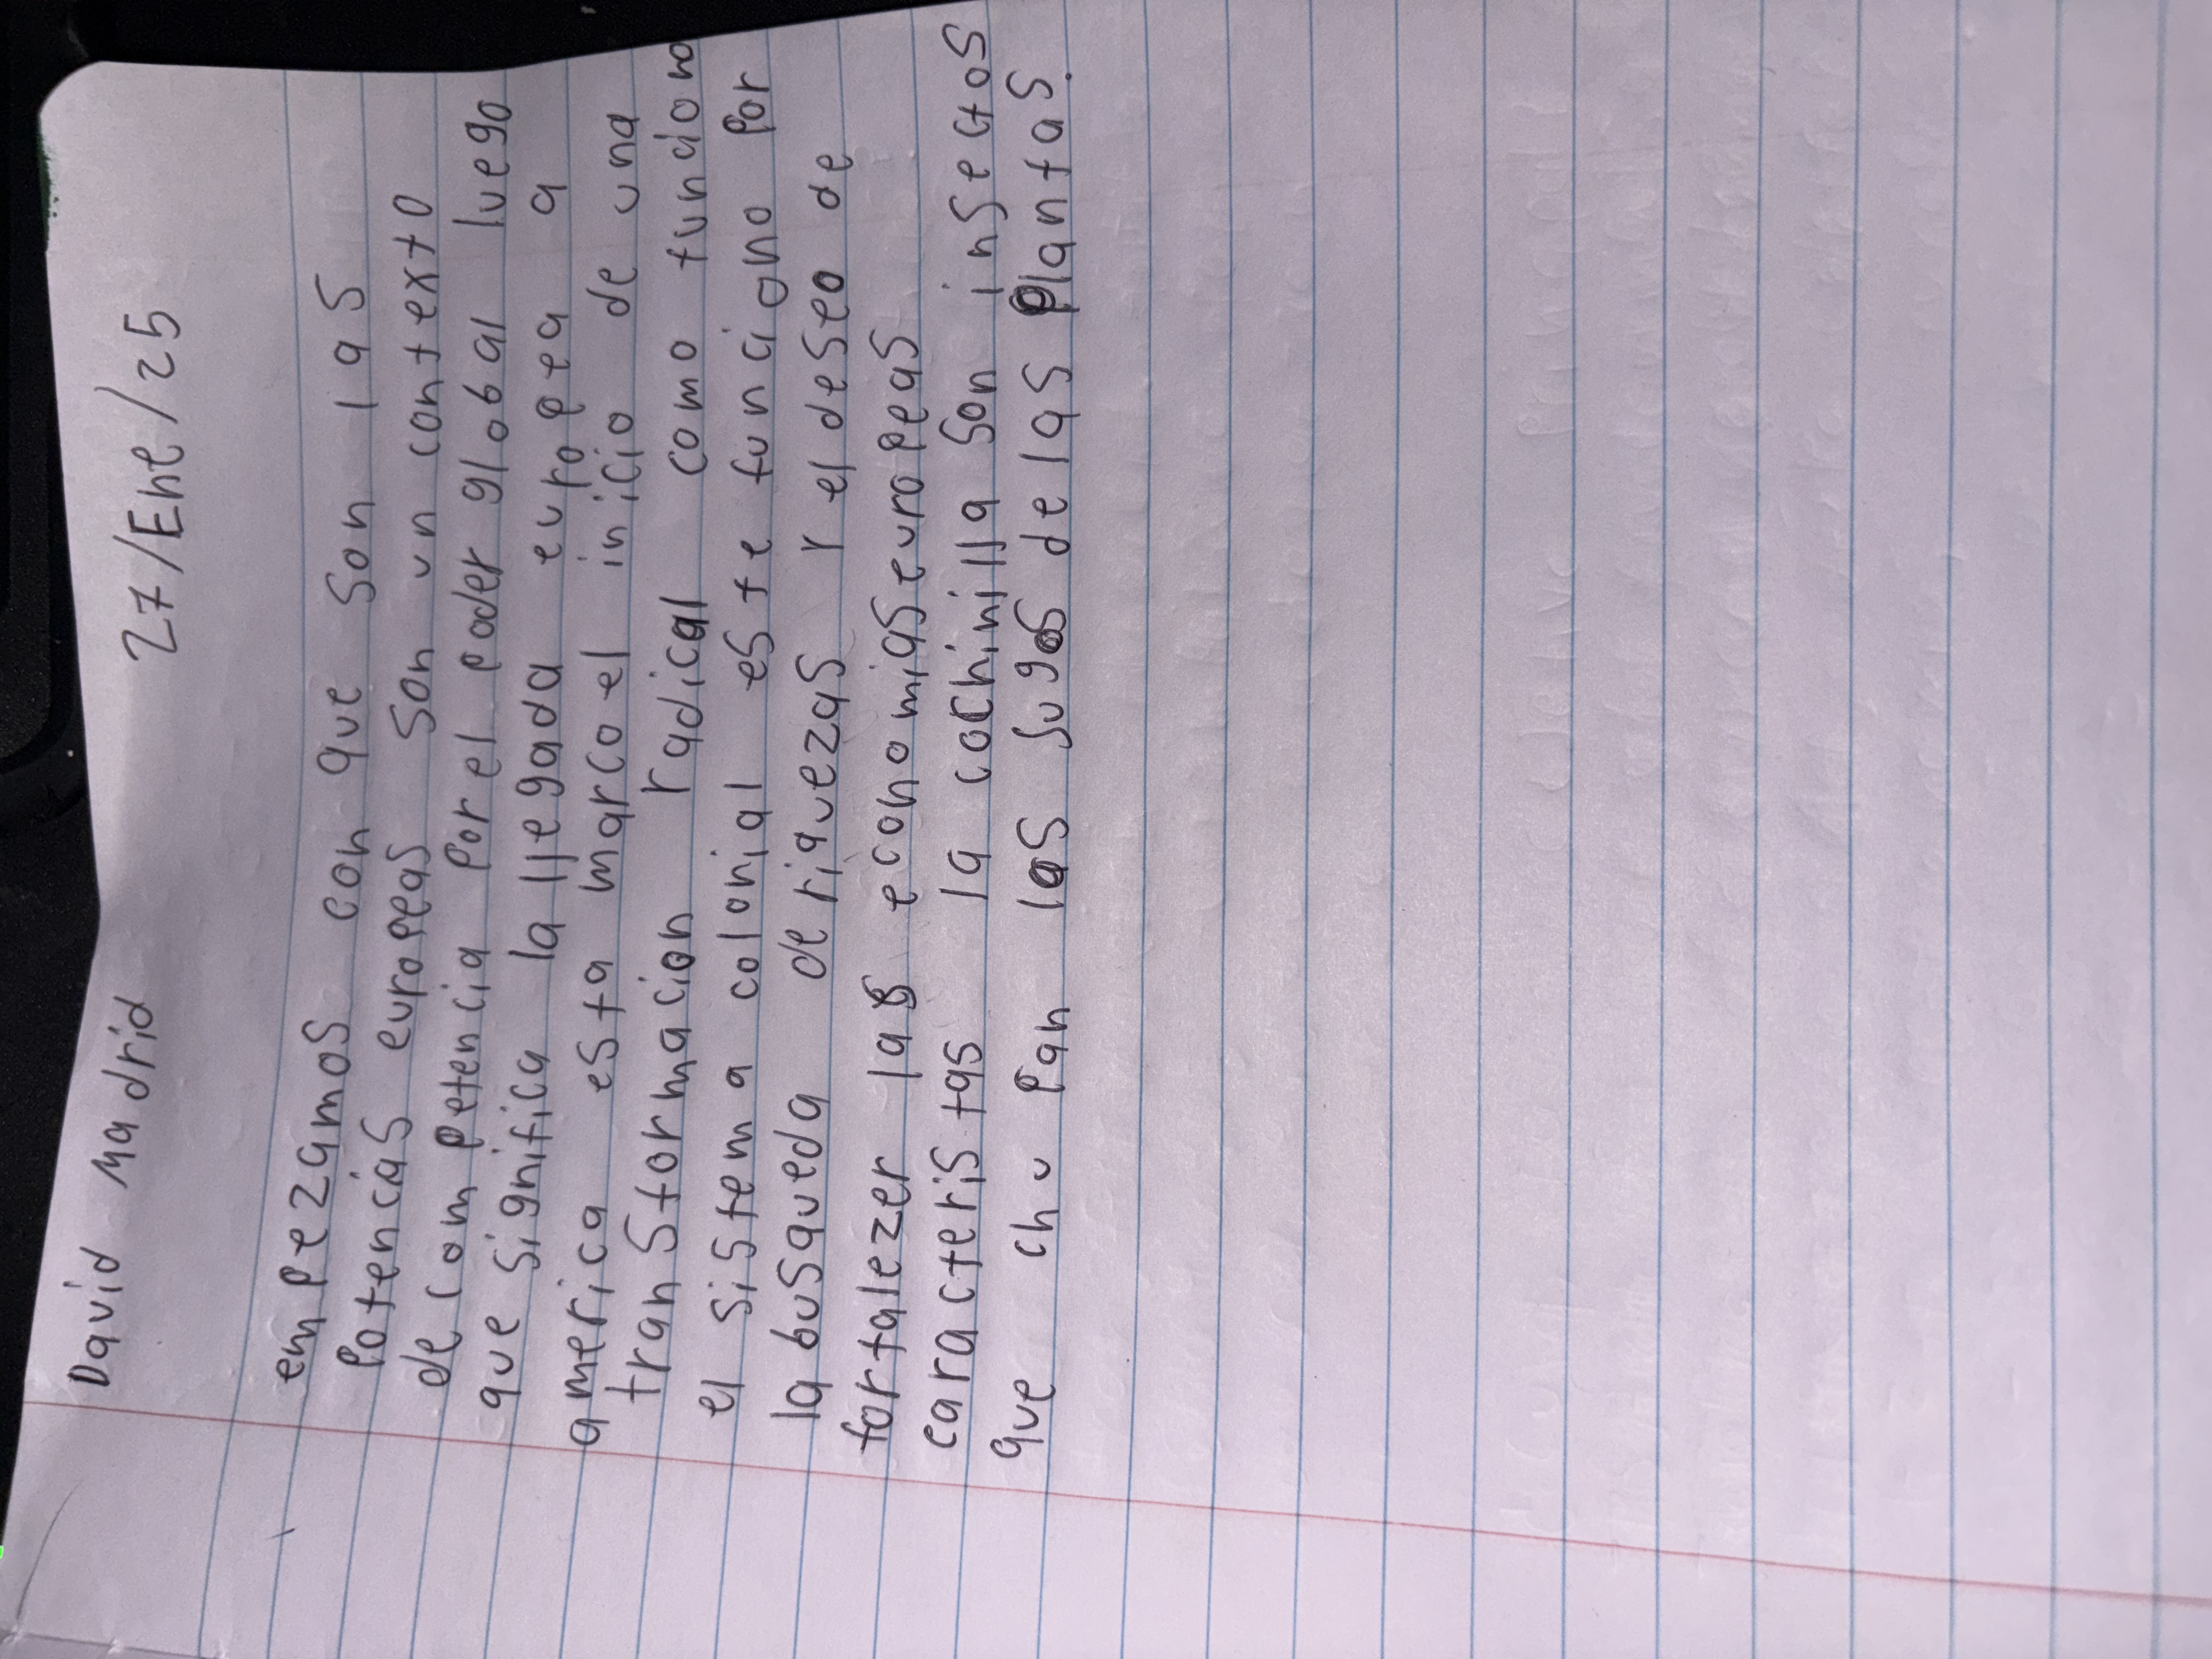 David Madrid
27/Ene/25
empezamos con que son las
Potencias europeas son un contexto
de competencia por el poder global luego
que significa la llegada europea a
america esta marco el inicio de una
transformacion radical como funciono
el sistema colonial este funciono por
la busqueda de riquezas y el deseo de
fortalezer las economias europeas
caracteristas la cochinilla son insectos
que chupan las sugos de las plantas.